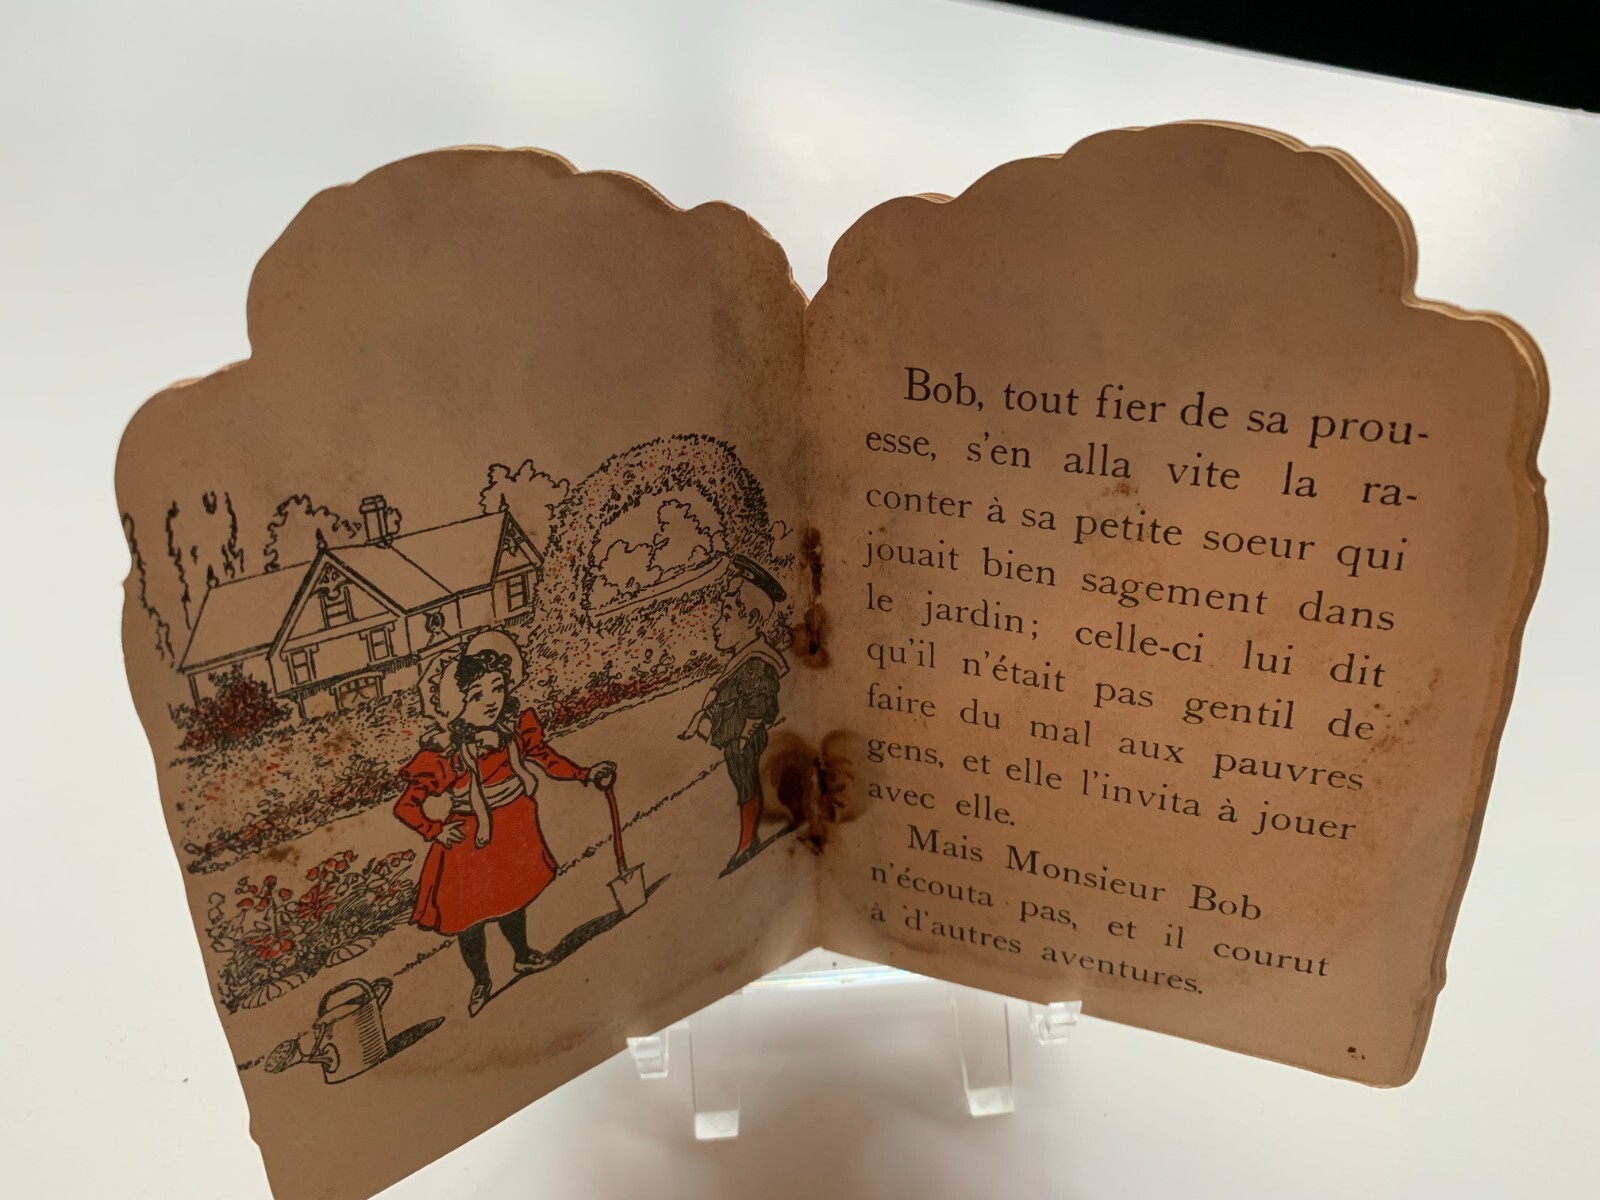 Bob, tout fier de sa prou-
esse, s'en alla vite la ra-
conter à sa petite soeur qui
jouait bien sagement dans
le jardin; celle-ci lui dit
qu'il n'était pas gentil de
faire du mal aux pauvres
gens, et elle l'invita à jouer
avec elle.
Mais Monsieur Bob
n'écouta pas, et il courut
à d'autres aventures.